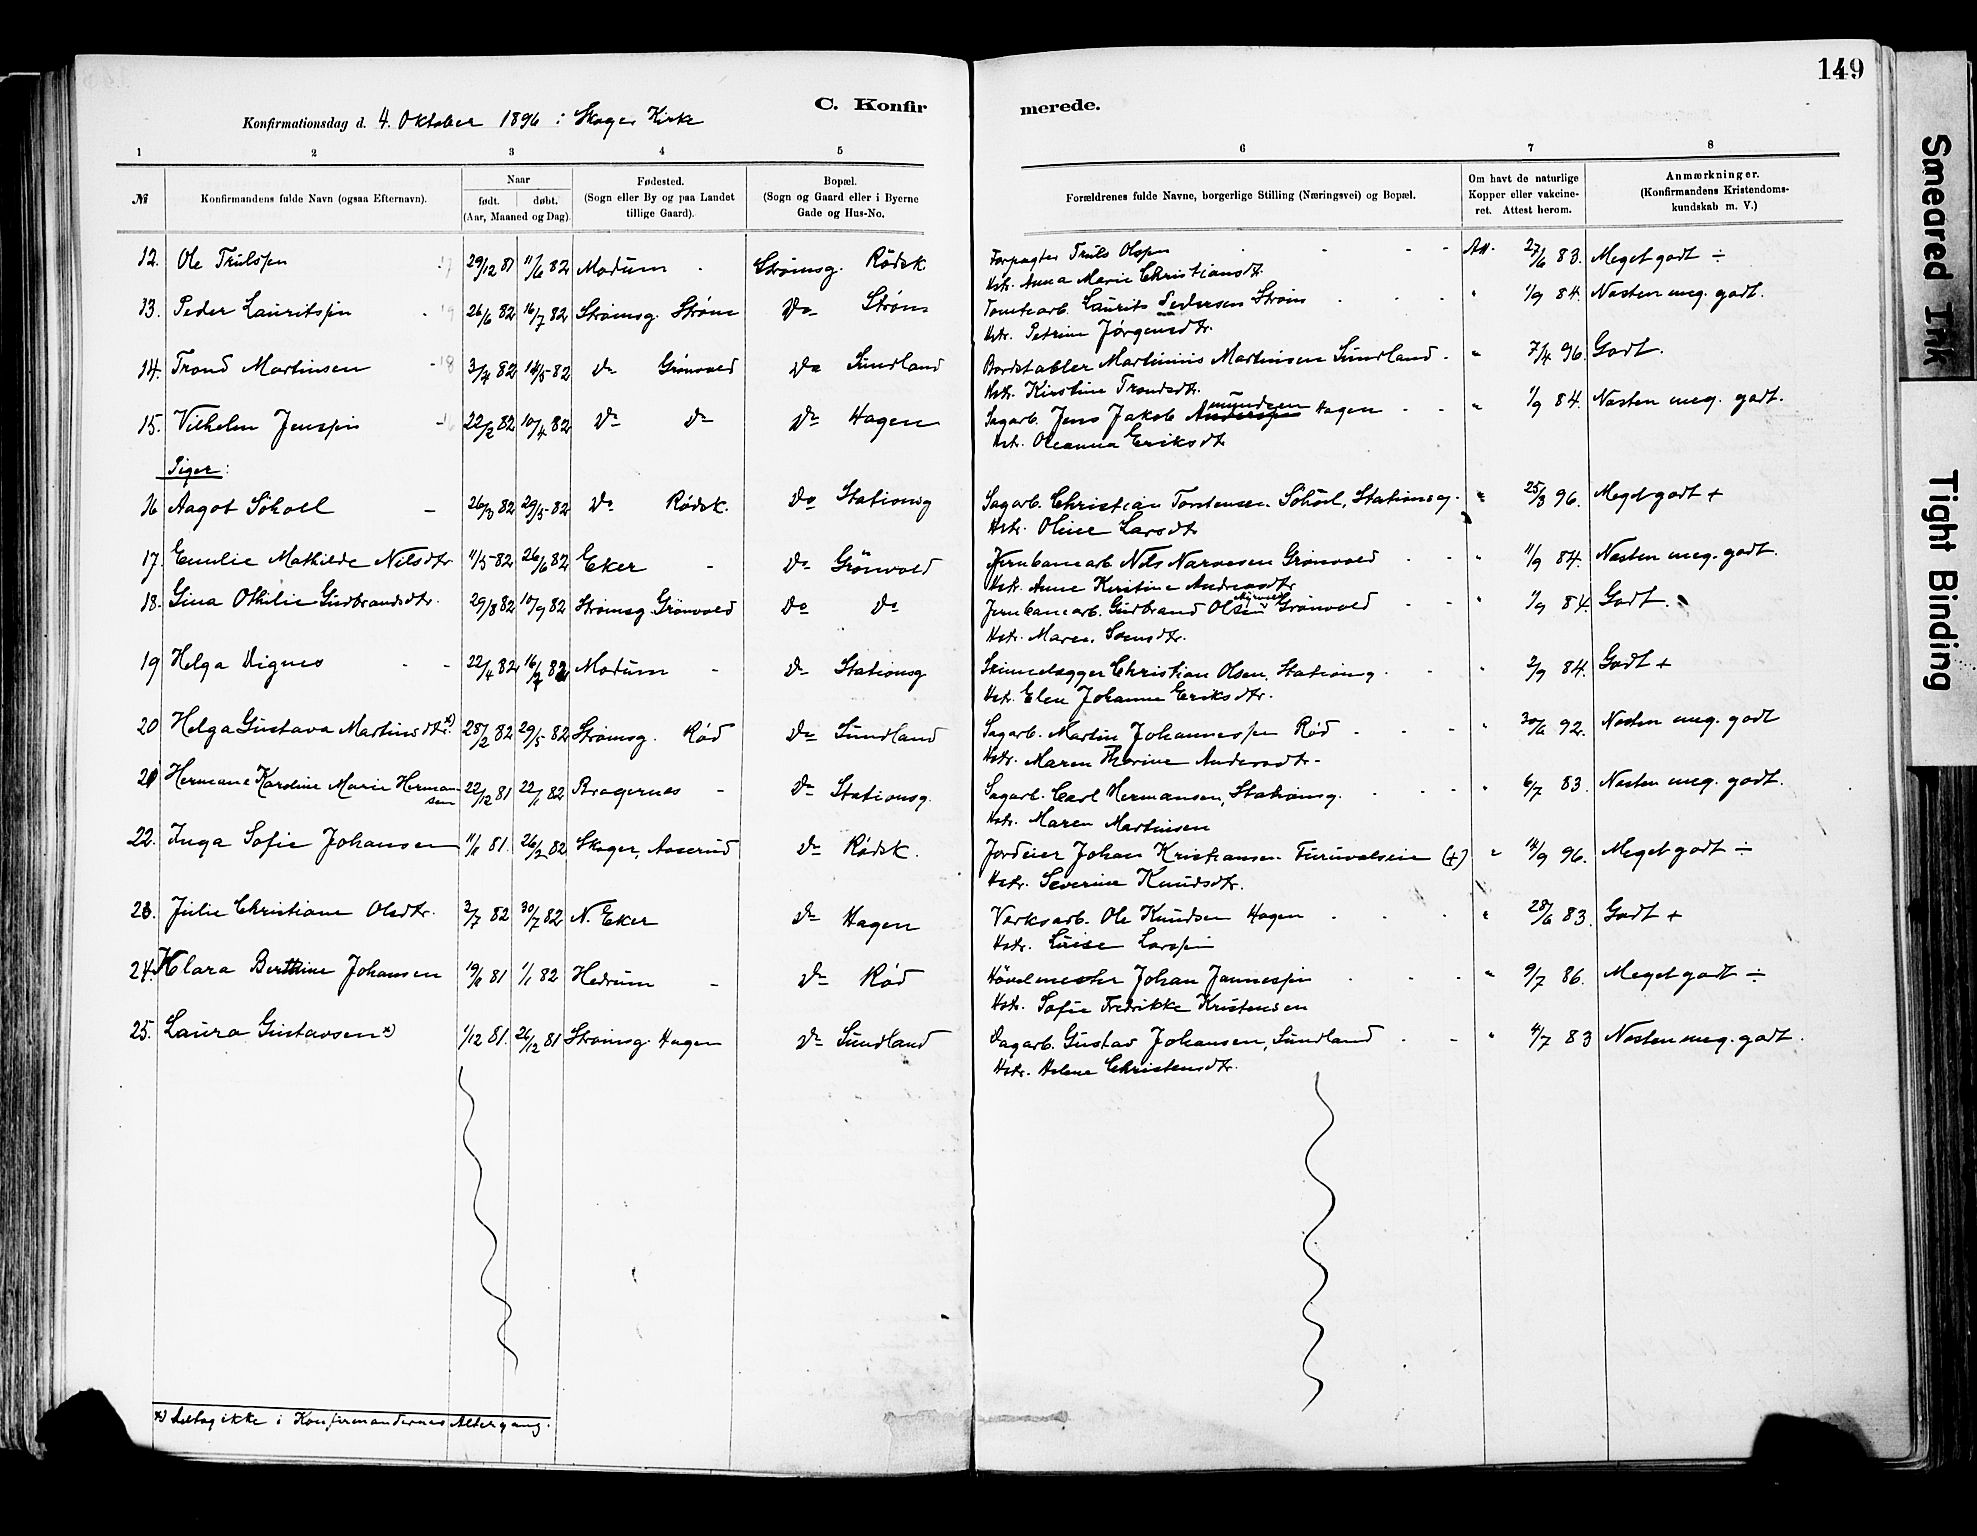 149
C. Konfir merede.
Konfirmationsdag d. 4. Oktober 1896 i Skoger Kirke
1 2 3 4 5 6 7 8
№ Konfirmandens fulde Navn (ogsaa Efternavn). Naar født. døbt. (Aar, Maaned og Dag). Fødested. (Sogn eller By og paa Landet tillige Gaard). Bopæl. (Sogn og Gaard eller i Byerne Gade og Hus-No. Forældrenes fulde Navne, borgerlige Stilling (Næringsvei) og Bopæl. Om havt de naturlige Kopper eller vakcineret. Attest herom. Anmærkninger. (Konfirmandens Kristendomskundskab m. V.)
12. Ole Trulssen 29/12 81 11/6 82 Modum Strømsg. Rødsk Forpagter Truls Olssen Att. 27/6 83. Meget godt ÷
Hstr. Anna Marie Christiansdtr.
13. Peder Lauritssen 26/6 82 16/7 82 Strømsg. Strøm Do Strøm Tomtearb. Laurits Pedersen Strøm " 1/9 84. Næsten meg. godt.
Hstr. Petrine Jørgensdtr.
14. Trond Martinsen 3/4 82 14/5 82 Do Grønvold Do Sundland Bordstabler Martinius Martinsen Sundland " 7/4 96. Godt.
Hstr. Kirstine Trondsdtr.
15. Vilhelm Jenssen 22/2 82 10/4 82 Do Do Do Hagen Sagarb. Jens Jakob Anderssen Hagen " 1/9 84. Næsten meg. godt.
Hstr. Oleanna Eriksdtr
Piger:
16 Aagot Sökoll 26/3 82 29/5 82 Do Rødsk. Do Stationsg Sagarb. Christian Torstensen Stationsg. " 25/3 96. Meget godt +
Hstr. Oline Larsdtr
17. Emilie Mathilde Nilsdtr 11/5 82 26/6 82 Eker Do Grönvold Jernbanearb Nils Narvesen Grønvold " 11/9 84. Næsten meg. godt.
Hstr. Anne Kirstine Andersdtr
18. Gina Othilie Gudbrandsdtr. 29/8 82 10/9 82 Strømsg Grønvold Do Do Jernbanearb. Gudbrand Olsen Grønvold " 1/9 84. Godt.
Hstr. Maren Svensdtr.
19 Helga Vignes 22/4 82 16/7 82 Modum Do Stationsg Skinnelægger Christian Olsen, Stationsg. " 2/9 84. Godt +
Hstr. Elen Johanne Eriksdtr.
20 Helga Gustava Martinsdtr. *) 28/2 82 29/5 82 Strømsg. Rød Do Sundland Sagarb. Martin Johannessen Rød " 30/6 92. Næsten meg. godt
Hstr. Maren Thorine Andersdtr.
21 Hermane Karoline Marie Hermansen 22/12 81 22/1 82 Bragernes Do Stationsg. Sagarb. Carl Hermansen, Stationsg. " 6/7 83. Næsten meg. godt.
Hstr. Maren Martinsen
22. Inga Sofie Johansen 11/11 81. 26/2 82 Skoger, Aaserud Do Rødsk. Jordeier Johan Kristiansen (+) " 14/9 96. Meget godt ÷
Hstr. Severine Knudsdtr.
23. Julie Christiane Olsdtr. 2/7 82 30/7 82 N. Eker Do Hagen Værksarb. Ole Knudsen Hagen " 28/6 83. Godt +
Hstr. Luise Larssen
24. Klara Berthine Johansen 19/11 81 1/1 82 Hedrum Do Rød Hövelmester Johan Jannessen " 9/7 86. Meget godt ÷
Hstr. Sofie Fredrikke Kristensen
25. Laura Gustavsen *) 1/12 81. 26/12 81 Strømsg. Hagen Do Sundland Dagarb. Gustav Johansen, Sundland " 4/7 83 Næsten meg. godt.
Hstr. Helene Christensdtr.
*) Deltog ikke i Konfirmandernes Altergang.
Smeared Ink
Tight Binding